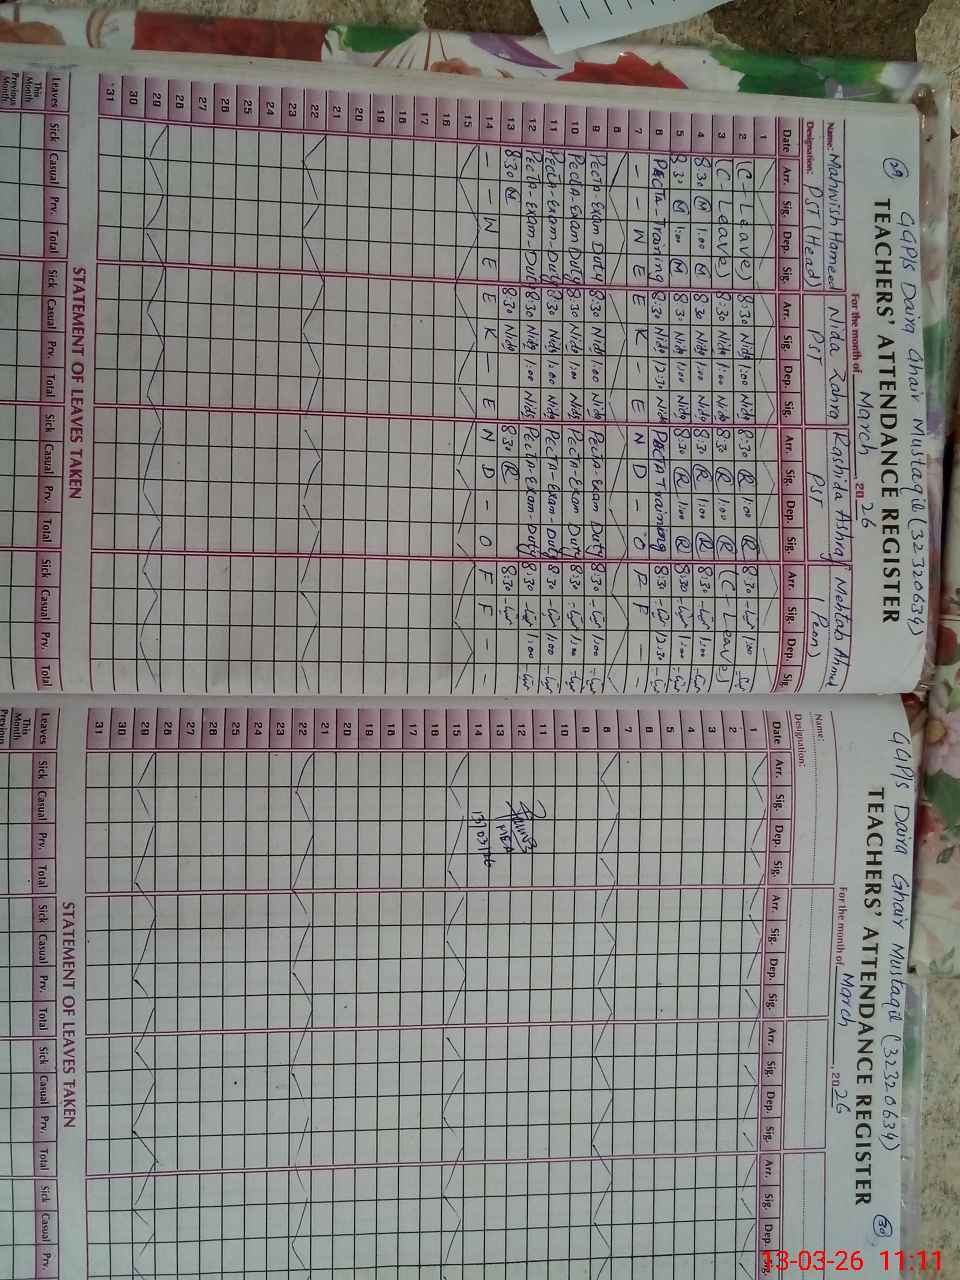 29
GGP/S Daira Ghair Mustaqil (32320634)
TEACHERS' ATTENDANCE REGISTER
For the month of March, 2026
Name: Mahnvish Hameed Nida Zahra Rashida Ashraf Mehtab Ahmad
Designation: PST (Head) PST PST (Peon)
Date Arr. Sig. Dep. Sig. Arr. Sig. Dep. Sig. Arr. Sig. Dep. Sig. Arr. Sig. Dep. Sig.
1
2 (C - Leave) 8:30 Nida 1:00 Nida 8:30 R 1:00 R 8:30 1:00
3 (C - Leave) 8:30 Nida 1:00 Nida 8:30 R 1:00 R (C - Leave)
4 8:30 M 1:00 M 8:30 Nida 1:00 Nida 8:30 R 1:00 R 8:30 1:00
5 8:30 M 1:00 M 8:30 Nida 1:00 Nida 8:30 R 1:00 R 8:30 1:00
6 PECTA - Training 8:30 Nida 12:30 Nida PECTA Training 8:30 12:30
7 - - W E E K - E N D - O F F - -
8
9 PECTA Exam Duty 8:30 Nida 1:00 Nida PECTA - Exam Duty 8:30 1:00
10 PECTA - Exam Duty 8:30 Nida 1:00 Nida PECTA - Exam Duty 8:30 1:00
11 PECTA - Exam - Duty 8:30 Nida 1:00 Nida PECTA - Exam - Duty 8:30 1:00
12 PECTA - Exam - Duty 8:30 Nida 1:00 Nida PECTA - Exam - Duty 8:30 1:00
13 8:30 M 8:30 Nida 8:30 R 8:30
14 - - W E E K - E N D - O F F -
15
16
17
18
19
20
21
22
23
24
25
26
27
28
29
30
31
STATEMENT OF LEAVES TAKEN
Leaves Sick Casual Prv. Total Sick Casual Prv. Total Sick Casual Prv. Total Sick Casual Prv. Total
This Month
Previous Month
30
GGP/S Daira Ghair Mustaqil (32320634)
TEACHERS' ATTENDANCE REGISTER
For the month of March, 2026
Name:
Designation:
Date Arr. Sig. Dep. Sig. Arr. Sig. Dep. Sig. Arr. Sig. Dep. Sig. Arr. Sig. Dep.
1
2
3
4
5
6
7
8
9
10
11
12
13
14
15
16
17
18
19
20
21
22
23
24
25
26
27
28
29
30
31
MEA
13/03/26
STATEMENT OF LEAVES TAKEN
Leaves Sick Casual Prv. Total Sick Casual Prv. Total Sick Casual Prv. Total Sick Casual Prv.
This Month
Previous
13-03-26 11:11